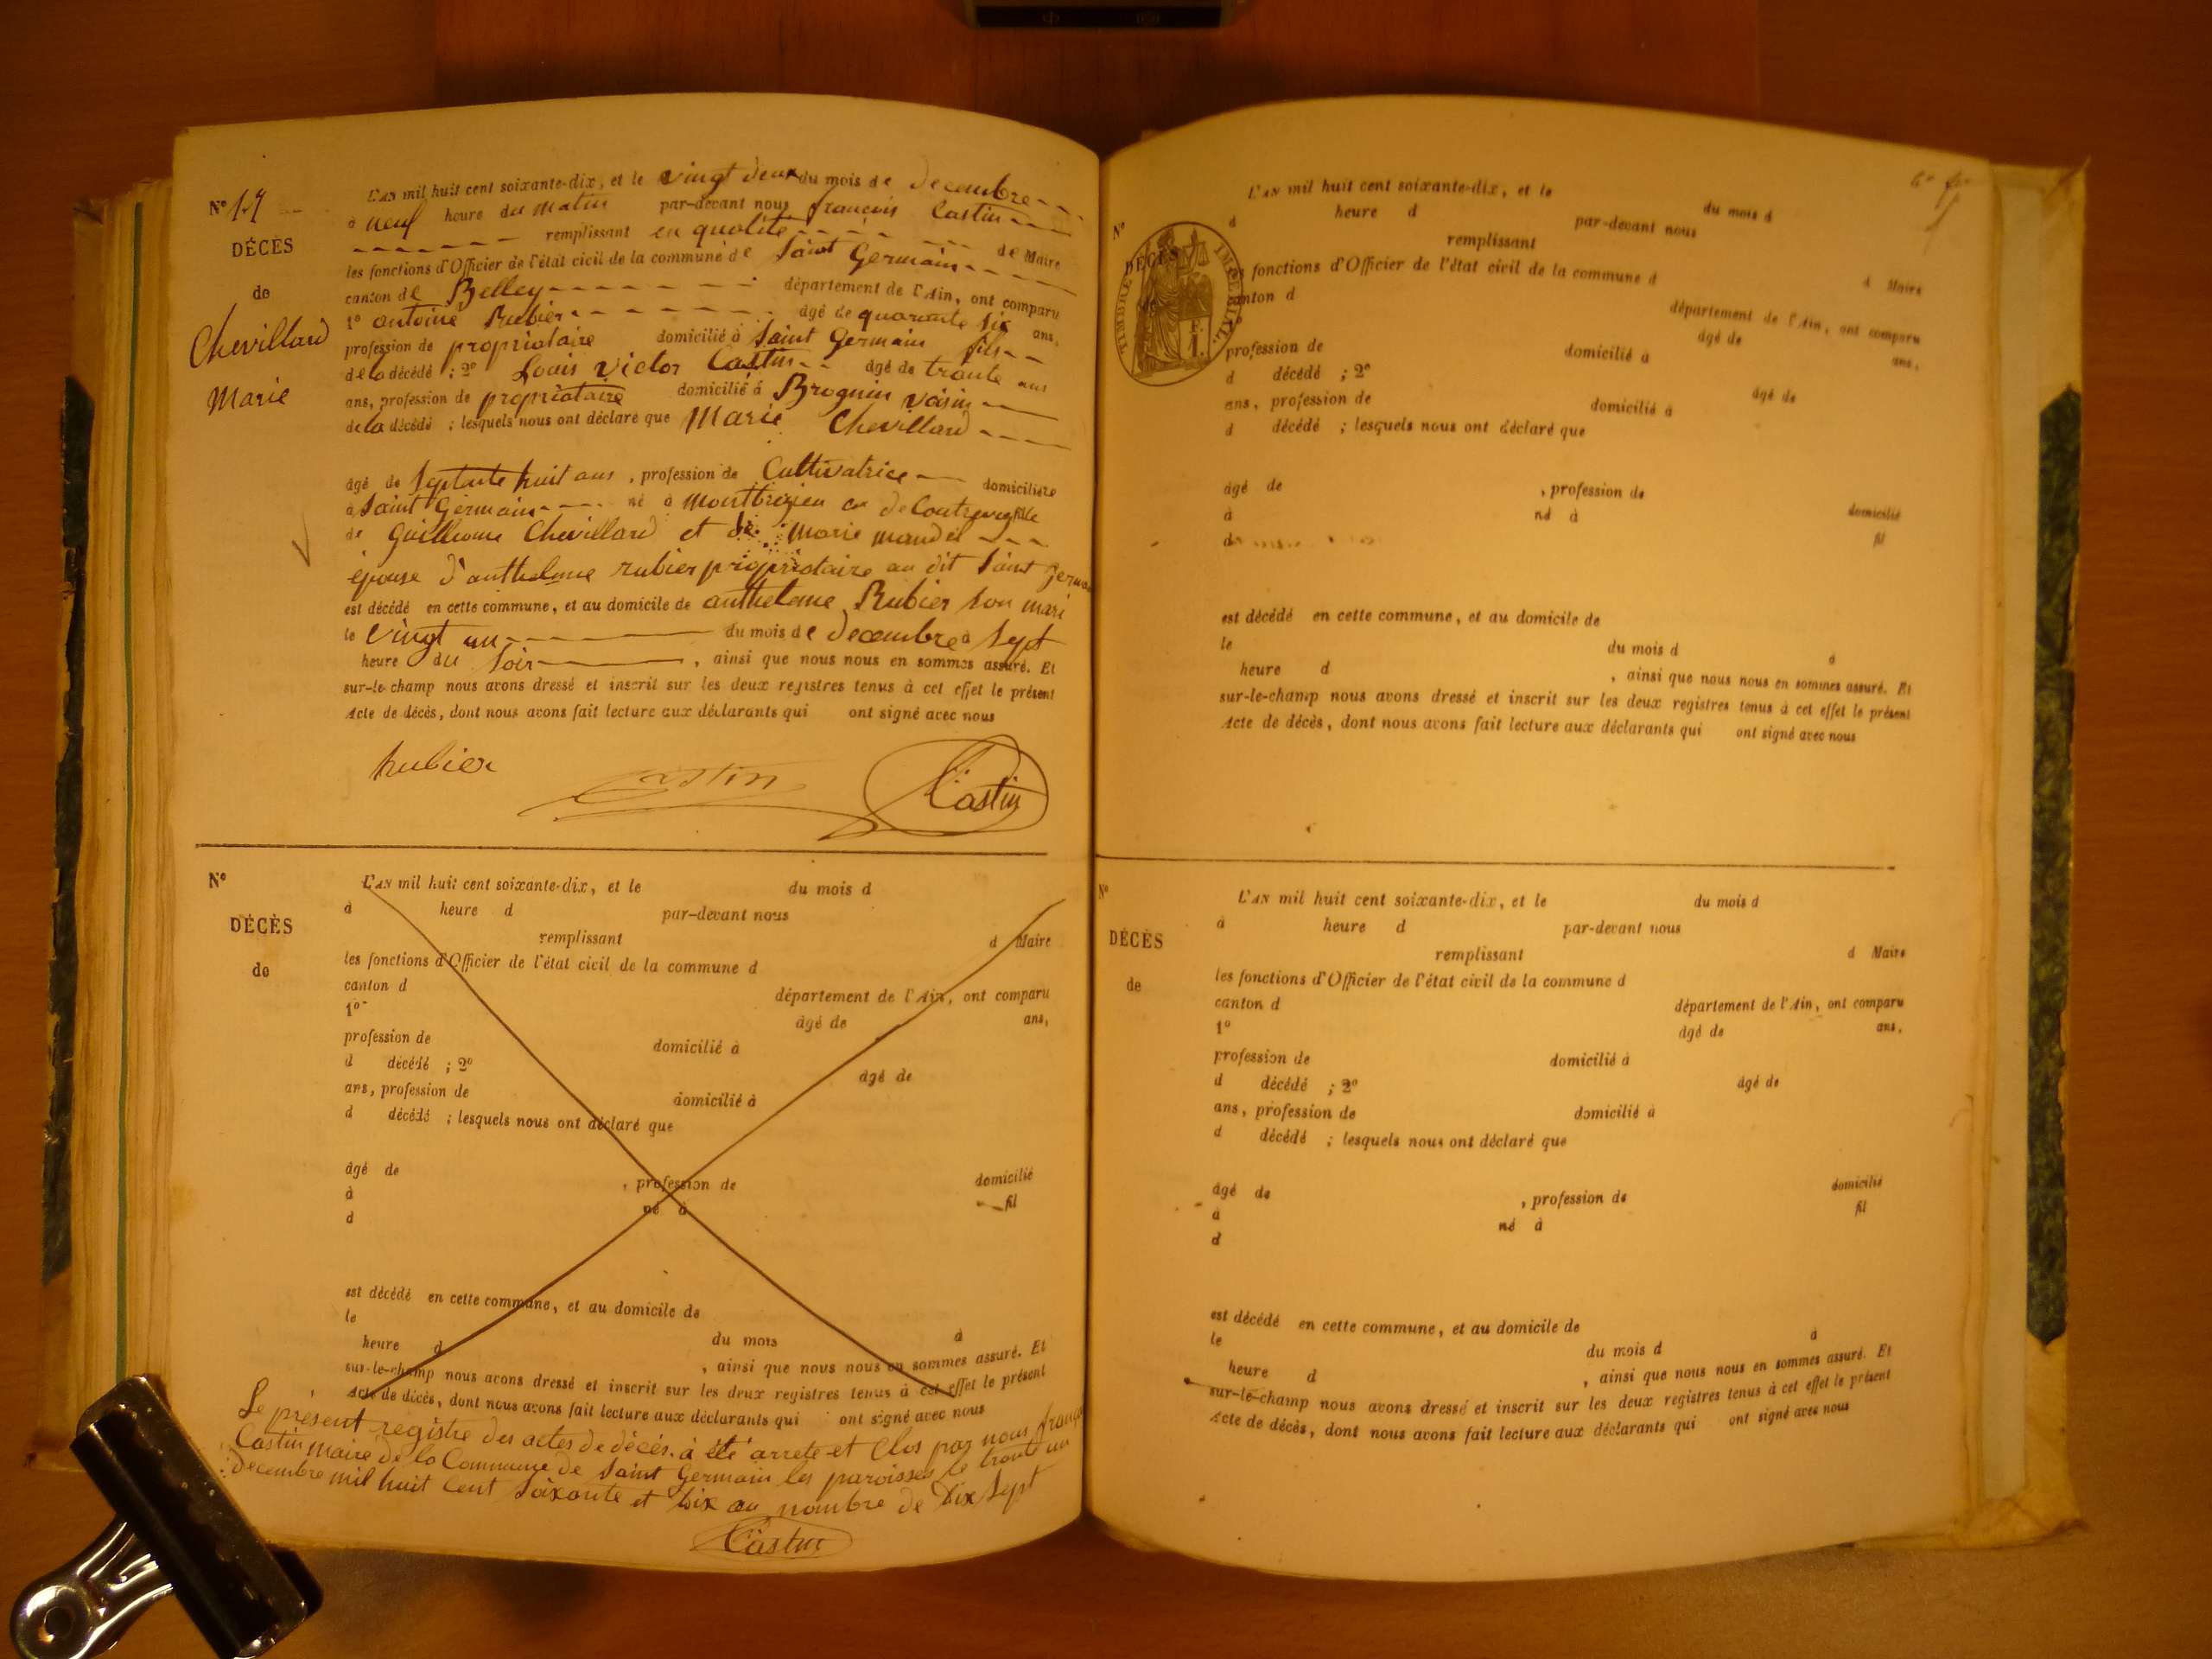 N° 17
DÉCÈS
de
Chevillard
Marie
L'AN mil huit cent soixante-dix, et le vingt deux du mois de decembre
à neuf heure du matin par-devant nous françois Castin
remplissant en qualité de Maire
les fonctions d'Officier de l'état civil de la commune de Saint Germain
canton de Belley département de l'Ain, ont comparu
1° antoine Rubier âgé de quarante six ans,
profession de propriataire domicilié à Saint Germain fils
de la décédé ; 2° Louis Victor Castin âgé de trante ans
ans, profession de propriataire domicilié à Brognin voisin
de la décédé ; lesquels nous ont déclaré que Marie Chevillard
âgé de Septante huit ans , profession de Cultivatrice domiciliée
à Saint Germain né à Montbrezieu de fille
de Guilliaume Chevillard et de Marie mandet
épouse d'anthelme rubier propriataire au dit Saint Germain
est décédé en cette commune, et au domicile de anthelme Rubier son mari
le vingt un du mois de decembre à Sept
heure du Soir , ainsi que nous nous en sommes assuré. Et
sur-le-champ nous avons dressé et inscrit sur les deux registres tenus à cet effet le présent
Acte de décès, dont nous avons fait lecture aux déclarants qui ont signé avec nous
Rubier Castin Castin
N°
DÉCÈS
de
L'AN mil huit cent soixante-dix, et le du mois d
à heure d par-devant nous
remplissant d Maire
les fonctions d'Officier de l'état civil de la commune d
canton d département de l'Ain, ont comparu
1° âgé de ans,
profession de domicilié à
d décédé ; 2° âgé de
ans, profession de domicilié à
d décédé ; lesquels nous ont déclaré que
âgé de , profession de domicilié
à né à fil
d
est décédé en cette commune, et au domicile de
le du mois à
heure d , ainsi que nous nous en sommes assuré. Et
sur-le-champ nous avons dressé et inscrit sur les deux registres tenus à cet effet le présent
Acte de décès, dont nous avons fait lecture aux déclarants qui ont signé avec nous
Le présent registre des actes de décés à été arrete et Clos par nous françois
Castin maire de la Commune de Saint Germain les paroisses le trante un
decembre mil huit Cent Soixante et dix au nombre de Dix Sept
Castin
N°
DÉCÈS
TIMBRE IMPÉRIAL
L'AN mil huit cent soixante-dix, et le du mois d
à heure d par-devant nous
remplissant d Maire
fonctions d'Officier de l'état civil de la commune d
canton d département de l'Ain, ont comparu
âgé de ans,
profession de domicilié à
d décédé ; 2° âgé de
ans, profession de domicilié à
d décédé ; lesquels nous ont déclaré que
âgé de , profession de domicilié
à né à fil
d
est décédé en cette commune, et au domicile de
le du mois d à
heure d , ainsi que nous nous en sommes assuré. Et
sur-le-champ nous avons dressé et inscrit sur les deux registres tenus à cet effet le présent
Acte de décès, dont nous avons fait lecture aux déclarants qui ont signé avec nous
N°
DÉCÈS
de
L'AN mil huit cent soixante-dix, et le du mois d
à heure d par-devant nous
remplissant d Maire
les fonctions d'Officier de l'état civil de la commune d
canton d département de l'Ain, ont comparu
1° âgé de ans,
profession de domicilié à
d décédé ; 2° âgé de
ans, profession de domicilié à
d décédé ; lesquels nous ont déclaré que
âgé de , profession de domicilié
à né à fil
d
est décédé en cette commune, et au domicile de
le du mois d à
heure d , ainsi que nous nous en sommes assuré. Et
sur-le-champ nous avons dressé et inscrit sur les deux registres tenus à cet effet le présent
Acte de décès, dont nous avons fait lecture aux déclarants qui ont signé avec nous